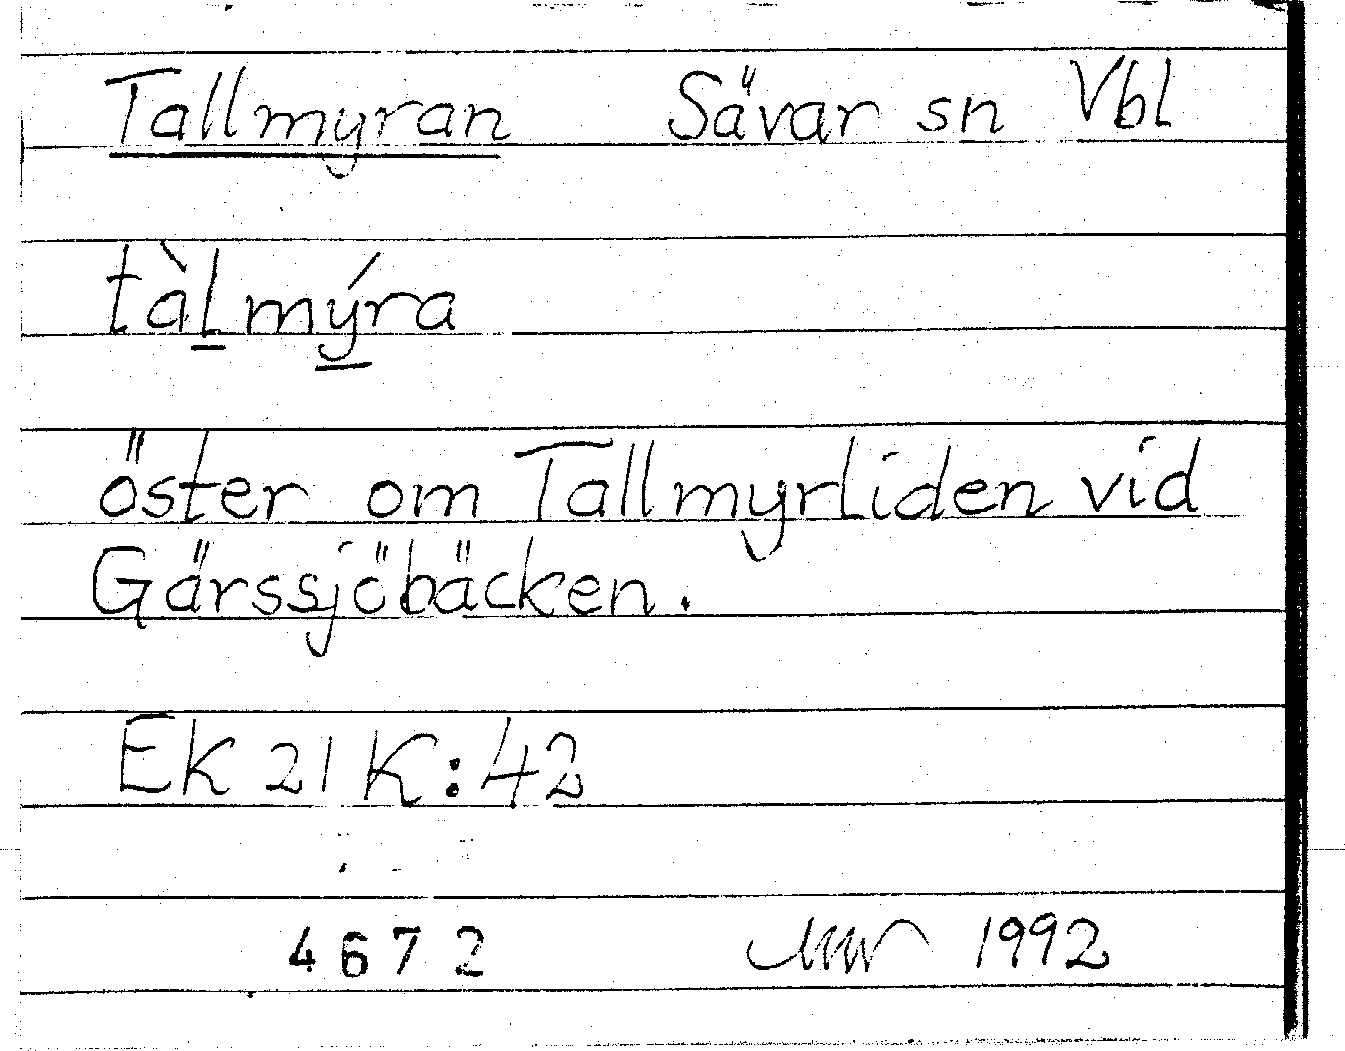 Tallmyran Sävar sn Vbl
tàlmýra
öster om Tallmyrliden vid
Gärssjöbäcken.
Ek 21 K:42
4672 1992